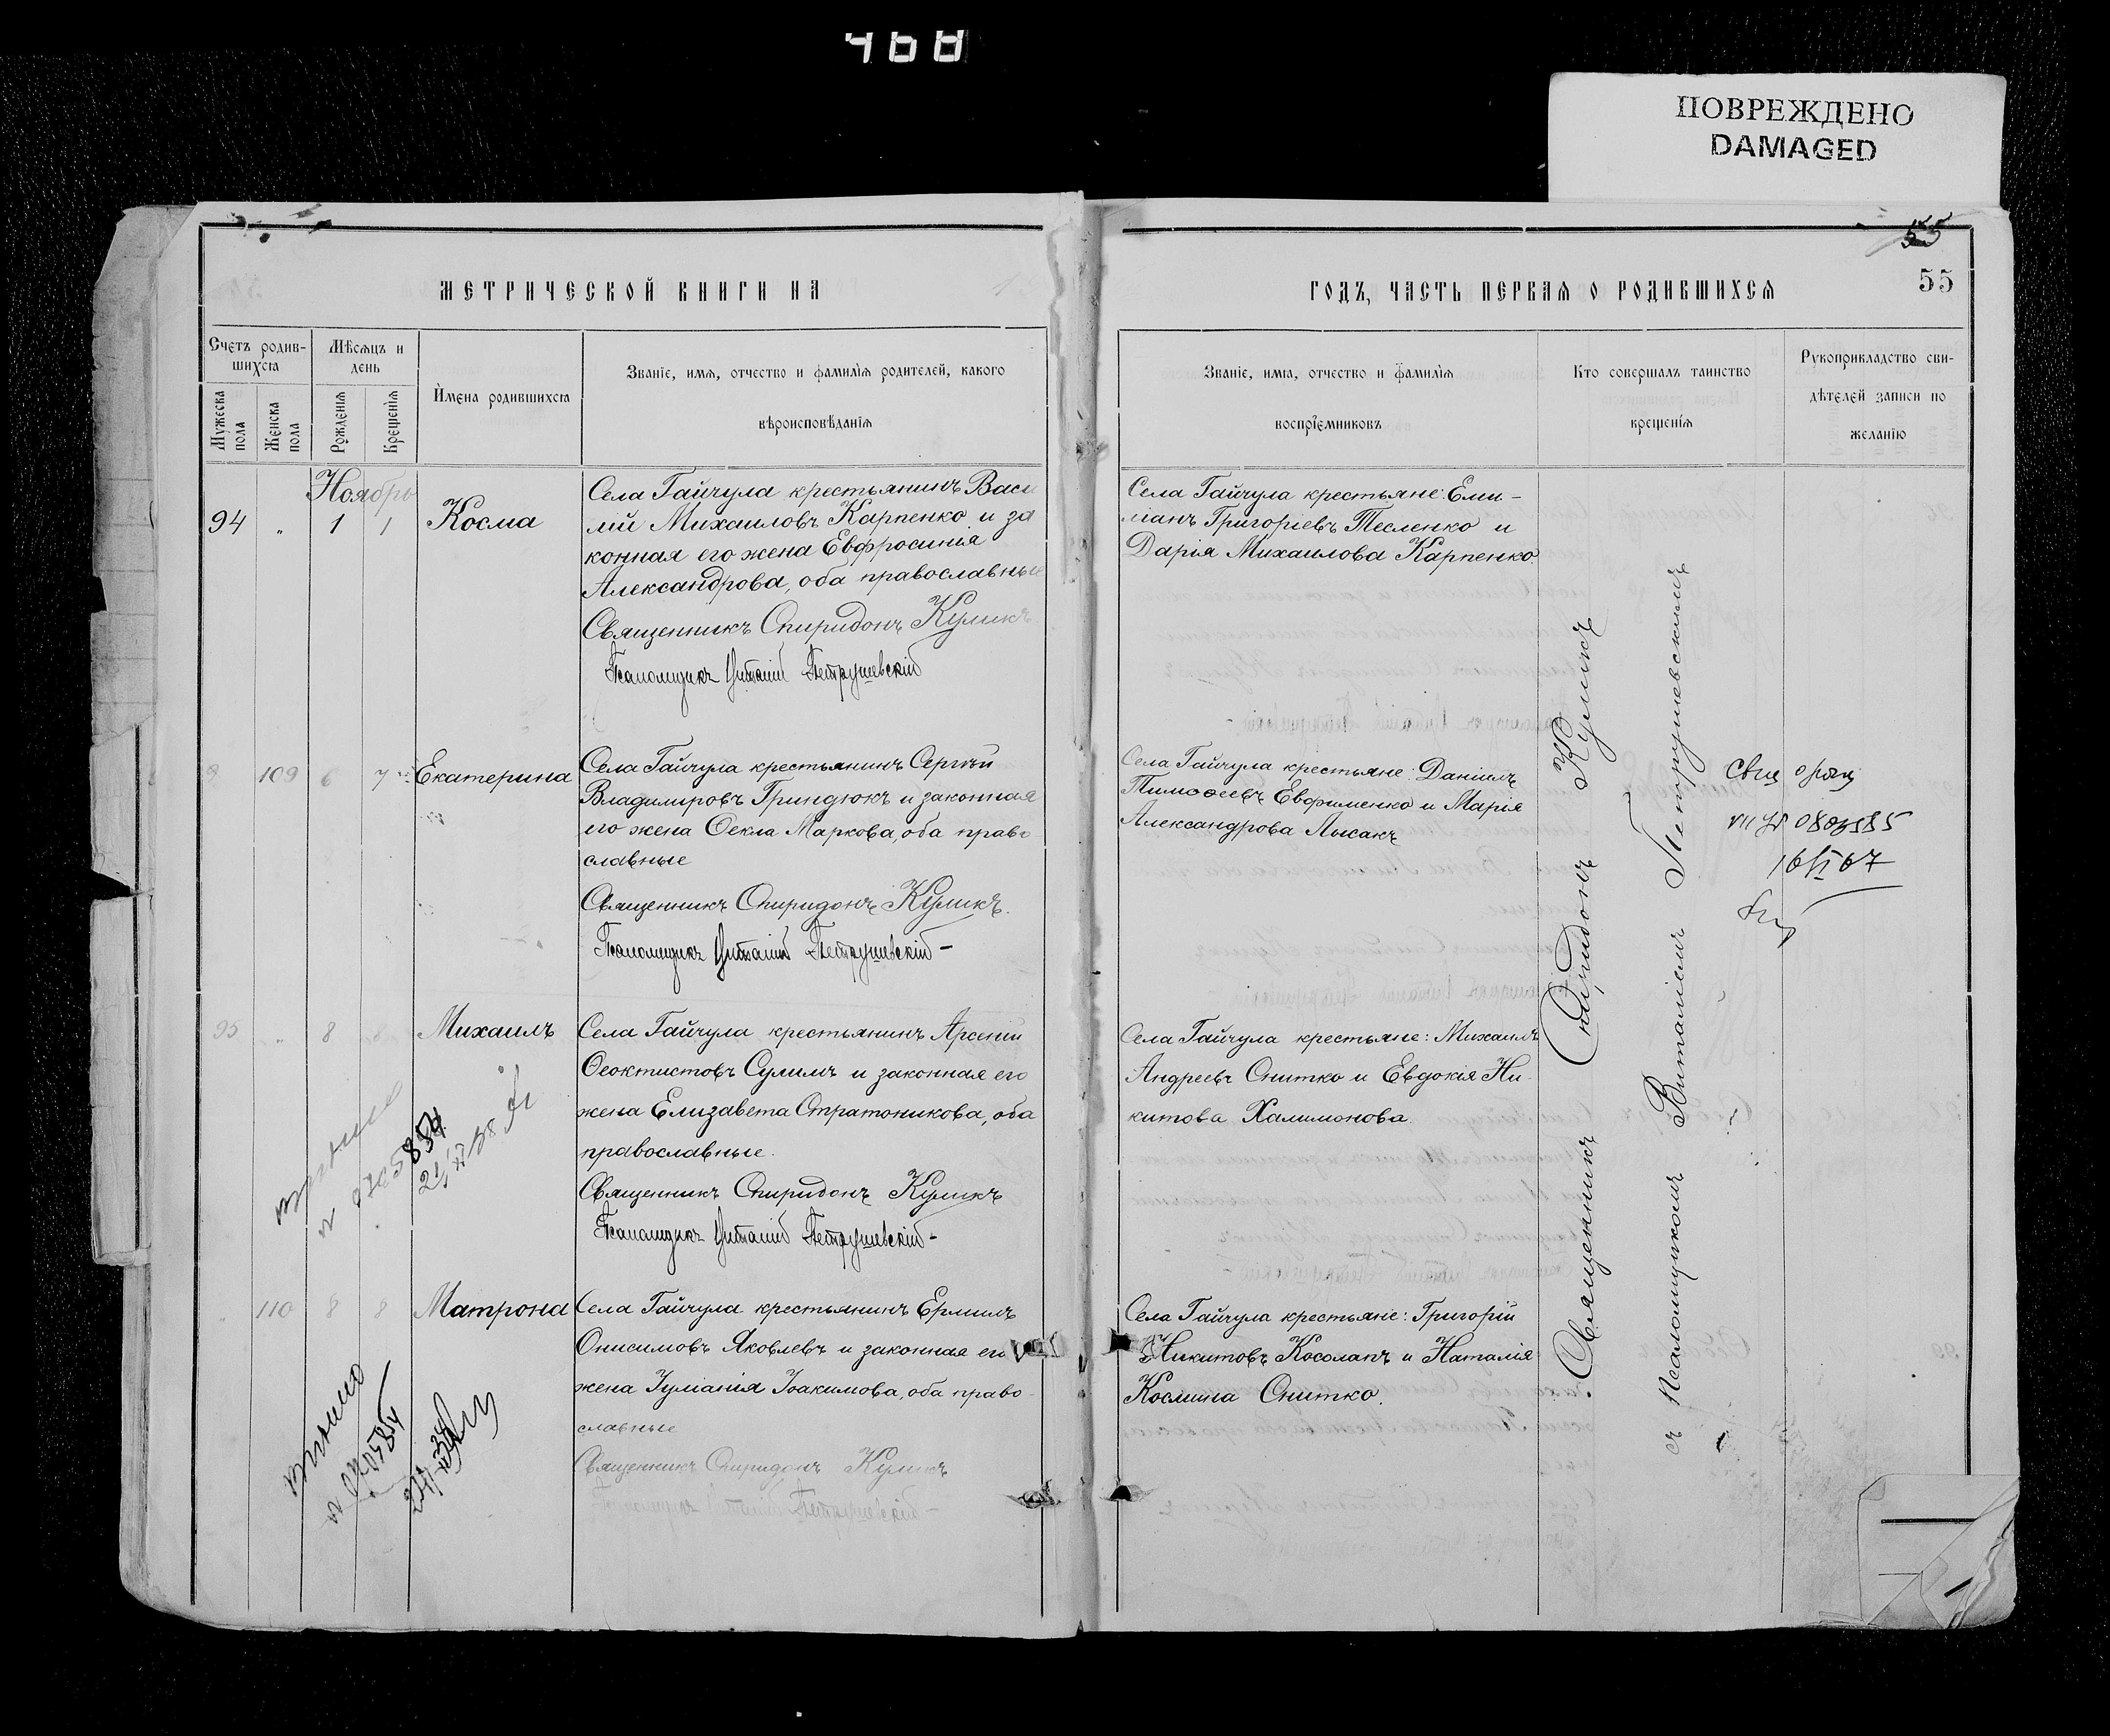 468
ПОВРЕЖДЕНО
DAMAGED
55
55
МЕТРИЧЕСКОЙ КНИГИ НА
ГОДЪ, ЧАСТЬ ПЕРВАЯ О РОДИВШИХСЯ
Счетъ родив-
шихся
Мужеска пола
Женска пола
Мѣсяцъ и
день
Рожденія
Крещенія
Имена родившихся
Званіе, имя, отчество и фамилія родителей, какого
вѣроисповѣданія
Званіе, имя, отчество и фамилія
воспріемниковъ
Кто совершалъ таинство
крещенія
Рукоприкладство сви-
дѣтелей записи по
желанію
Ноябрь
94 „ 1 1 Косма
Села Гайчула крестьянинъ Васи
лій Михаиловъ Карпенко и за
конная его жена Евфросинія
Александрова, оба православные
Священникъ Спиридонъ Куликъ
Псаломщикъ Виталій Петрушевскій
Села Гайчула крестьяне: Еми-
ліанъ Григоріевъ Тесленко и
Дарія Михаилова Карпенко.
109 6 7 Екатерина
Села Гайчула крестьянинъ Сергѣй
Владимировъ Гриндюкъ и законная
его жена Ѳекла Маркова, оба право
славные
Священникъ Спиридонъ Куликъ.
Псаломщикъ Виталій Петрушевскій -
Села Гайчула крестьяне: Даніилъ
Тимоѳеевъ Евфименко и Марія
Александрова Лысакъ
95 „ 8 8 Михаилъ
Села Гайчула крестьянинъ Арсеній
Ѳеоктистовъ Сулимъ и законная его
жена Елизавета Стратоникова, оба
православные.
Священникъ Спиридонъ Куликъ
Псаломщикъ Виталій Петрушевскій -
Села Гайчула крестьяне: Михаилъ
Андреевъ Снитко и Евдокія Ни-
китова Халимонова.
„ 110 8 8 Матрона
Села Гайчула крестьянинъ Ермилъ
Онисимовъ Яковлевъ и законная его
жена Іуліанія Іоакимова, оба право-
славные
Священникъ Спиридонъ Куликъ
Псаломщикъ Виталій Петрушевскій -
Села Гайчула крестьяне: Григорій
Никитовъ Косолапъ и Наталія
Космина Снитко.
Священникъ Спиридонъ Куликъ
съ Псаломщикомъ Виталіемъ Петрушевскимъ